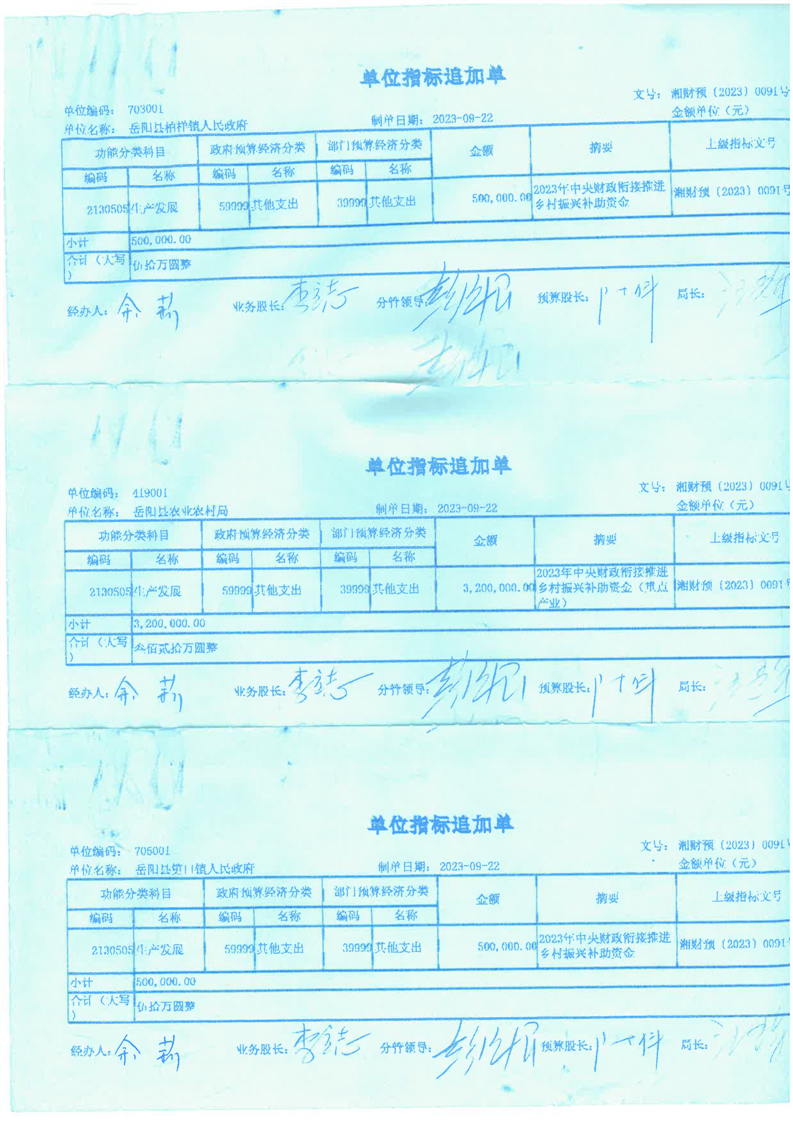 单位指标追加单
文号: 湘财预〔2023〕0091号
单位编码: 703001
制单日期: 2023-09-22
金额单位(元)
单位名称: 岳阳县柏祥镇人民政府
功能分类科目 政府预算经济分类 部门预算经济分类 金额 摘要 上级指标文号
编码 名称 编码 名称 编码 名称
2130505 生产发展 59999 其他支出 39999 其他支出 500,000.00 2023年中央财政衔接推进乡村振兴补助资金 湘财预〔2023〕0091号
小计 500,000.00
合计(大写) 伍拾万圆整
经办人: 业务股长: 李立志 分管领导: 预算股长: 局长:
单位指标追加单
文号: 湘财预〔2023〕0091号
单位编码: 419001
制单日期: 2023-09-22
金额单位(元)
单位名称: 岳阳县农业农村局
功能分类科目 政府预算经济分类 部门预算经济分类 金额 摘要 上级指标文号
编码 名称 编码 名称 编码 名称
2130505 生产发展 59999 其他支出 39999 其他支出 3,200,000.00 2023年中央财政衔接推进乡村振兴补助资金(重点产业) 湘财预〔2023〕0091号
小计 3,200,000.00
合计(大写) 叁佰贰拾万圆整
经办人: 业务股长: 李立志 分管领导: 预算股长: 局长:
单位指标追加单
文号: 湘财预〔2023〕0091号
单位编码: 705001
制单日期: 2023-09-22
金额单位(元)
单位名称: 岳阳县筻口镇人民政府
功能分类科目 政府预算经济分类 部门预算经济分类 金额 摘要 上级指标文号
编码 名称 编码 名称 编码 名称
2130505 生产发展 59999 其他支出 39999 其他支出 500,000.00 2023年中央财政衔接推进乡村振兴补助资金 湘财预〔2023〕0091号
小计 500,000.00
合计(大写) 伍拾万圆整
经办人: 业务股长: 李立志 分管领导: 预算股长: 局长: